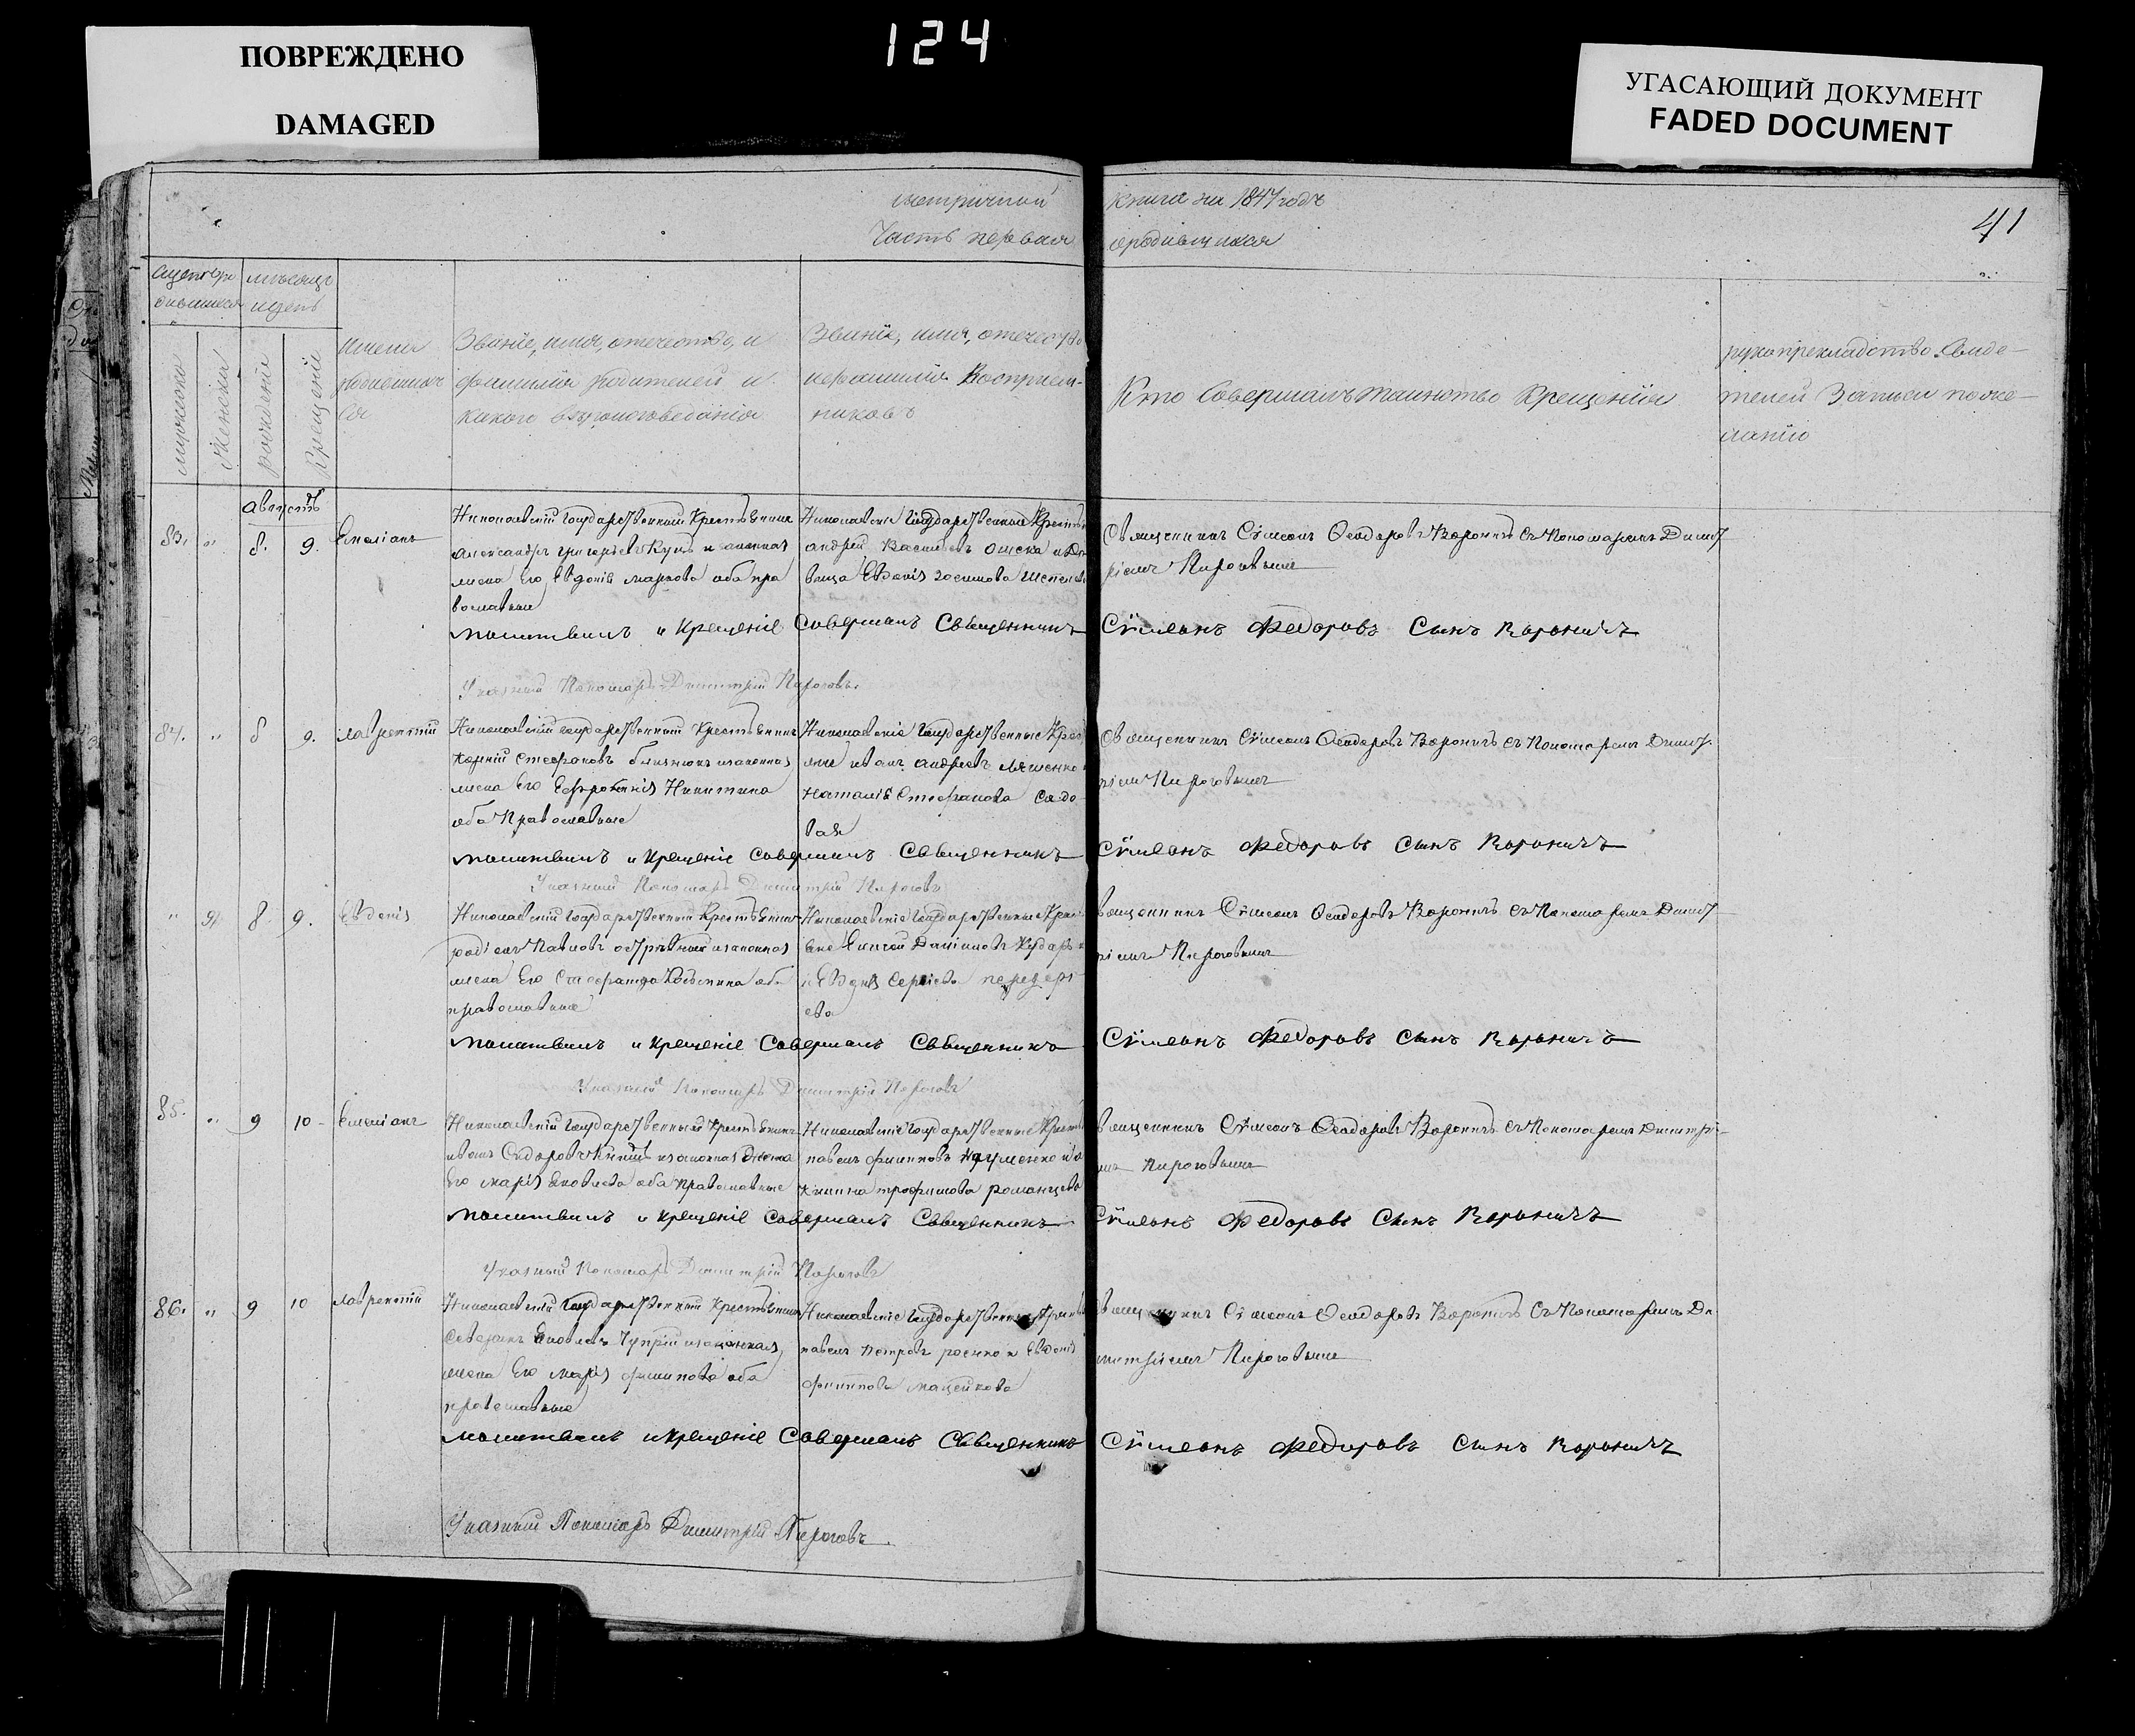 ПОВРЕЖДЕНО
DAMAGED
124
УГАСАЮЩИЙ ДОКУМЕНТ
FADED DOCUMENT
метричной книги на 1847 годъ
Часть первая
41
месяцъ
и день
мужеска
женска
рожденія
крещенія
имена
Званіе, имя, отечество, и
фамилія родителей и
какого вѣроисповеданія
Званіе, имя, отечество
и фамилія Восприем-
никовъ
Кто Совершалъ таинство Крещенія
рукоприкладство Свиде-
телей Записи по же-
ланію
августъ
83. " 8. 9. Емеліанъ
Николаевскій государственный Крестьянинъ
александръ григорьевъ и законная
жена Его Евдокія маркова оба пра
вославные
Николаевскіе государственные
андрей Васильевъ
вица Евдокія
Священникъ Сѵмеонъ Ѳеодоровъ Вороничъ съ Пономаремъ Димит
ріемъ Пироговымъ
молитвилъ и Крещеніе Совершалъ Священникъ Сѵмеонъ Федоровъ Сынъ Вороничъ
Указный Пономарь Димитрій Пироговъ
84. " 8 9. лаврентій
Николаевскій государственный Крестьянинъ
Стефановъ законная
жена Его Евфросинія Никитина
оба Православные
Николаевскіе государственные
иванъ андреевъ
Наталія Стефанова Садо
вая
Священникъ Сѵмеонъ Ѳеодоровъ Вороничъ съ Пономаремъ Димит
ріемъ Пироговымъ
молитвилъ и Крещеніе Совершалъ Священникъ Сѵмеонъ Федоровъ Сынъ Вороничъ
Указный Пономарь Димитрій Пироговъ
" 8 9. Евдокія
Николаевскій государственный Крестьянинъ
Павловъ законная
жена Его оба
православные
Николаевскіе государственные
Даниловъ
и Евдокія Сергіева
ева
Священникъ Сѵмеонъ Ѳеодоровъ Вороничъ съ Пономаремъ Димит
ріемъ Пироговымъ
молитвилъ и крещеніе Совершалъ Священникъ Сѵмеонъ Федоровъ Сынъ Вороничъ
Указный Пономарь Димитрій Пироговъ
85. " 9 10 Емеліанъ
Николаевскій государственный Крестьянинъ
иванъ Сидоровъ законная жена
Его марія Яковлева оба православные
Николаевскіе государственные
павелъ филиповъ Науменко
трофимова романцева
Священникъ Сѵмеонъ Ѳеодоровъ Вороничъ съ Пономаремъ Димитрі
емъ Пироговымъ
молитвилъ и крещеніе Совершалъ Священникъ Сѵмеонъ Федоровъ Сынъ Вороничъ
Указный Пономарь Димитрій Пироговъ
86. " 9 10 лаврентій
Николаевскій государственный Крестьянинъ
Яковлевъ законная
жена Его марія филипова оба
православные
Николаевскіе государственные
павелъ петровъ и Евдокія
филипова
Священникъ Сѵмеонъ Ѳеодоровъ Вороничъ съ Пономаремъ Ди
митріемъ Пироговымъ
молитвилъ и крещеніе Совершалъ Священникъ Сѵмеонъ Федоровъ Сынъ Вороничъ
Указный Пономарь Димитрій Пироговъ